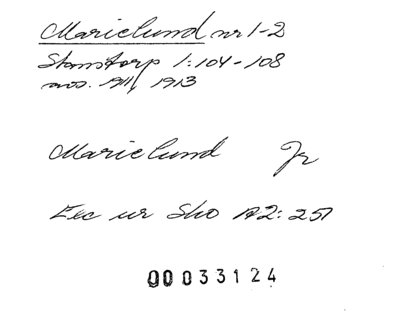 Marielund nr 1-2
Stanstorp 1:104-108
avs. 1911/1913
Marielund Jr
Exc ur Sko A2:257
00033124